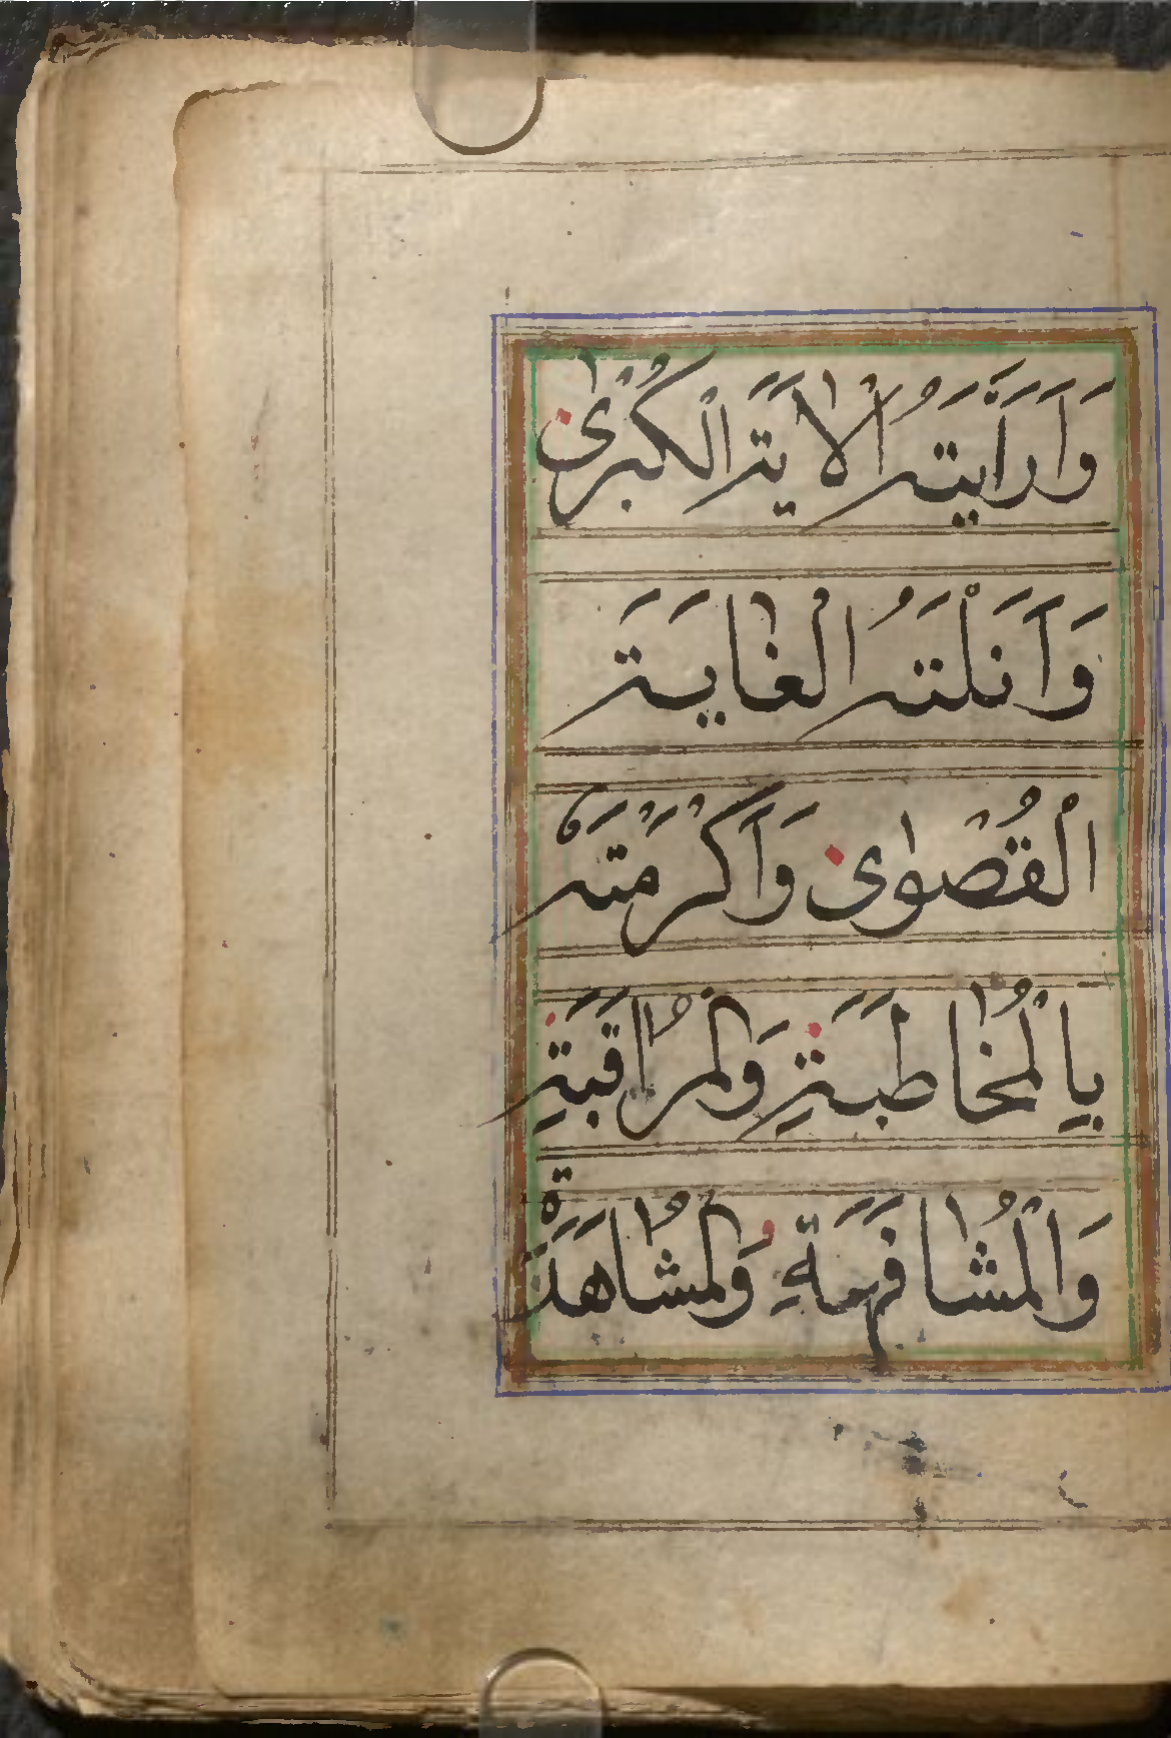 وَاَرَاَيْتَهُ الْاٰيَةَ الْكُبْرٰى
وَاَنَلْتَهُ الْغَايَةَ
الْقُصْوٰى وَاَكْرَمْتَهُ
بِالْمُخَاطَبَةِ وَالْمُرَاقَبَةِ
وَالْمُشَافَهَةِ وَالْمُشَاهَدَةِ